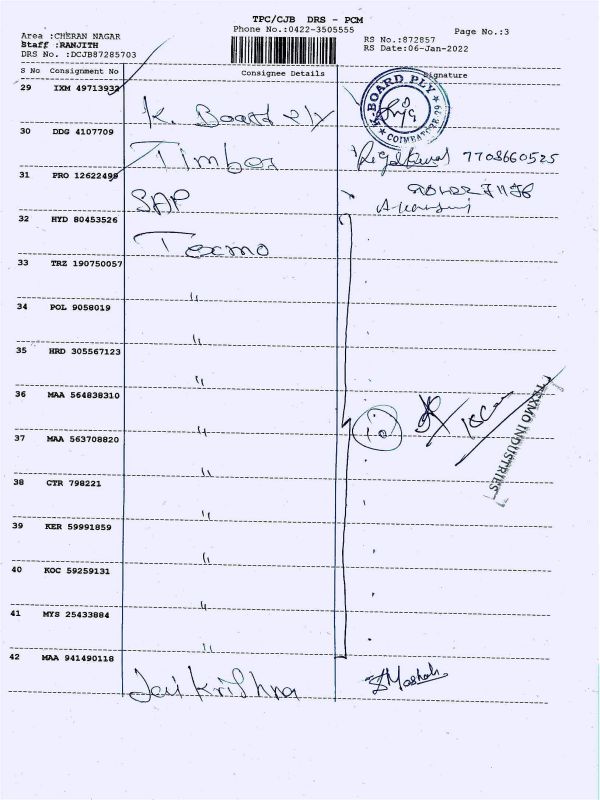 TPC/CJB DRS - PCM
Area :CHERAN NAGAR
Phone No.:0422-3505555
Page No.:3
Staff :RANJITH
RS No.:872857
DRS No. :DCJB87285703
RS Date:06-Jan-2022
S No Consignment No Consignee Details Signature
29 IXM 49713932
K. Board Ply
K-BOARD PLY
COIMBATORE-29
30 DDG 4107709
7708660525
31 PRO 12622499
SAP
32 HYD 80453526
Texmo
33 TRZ 190750057
"
34 POL 9058019
"
35 HRD 305567123
"
36 MAA 564838310
"
TEXMO INDUSTRIES
10
37 MAA 563708820
"
38 CTR 798221
"
39 KER 59991859
"
40 KOC 59259131
"
41 MYS 25433884
"
42 MAA 941490118
Jai Krishna